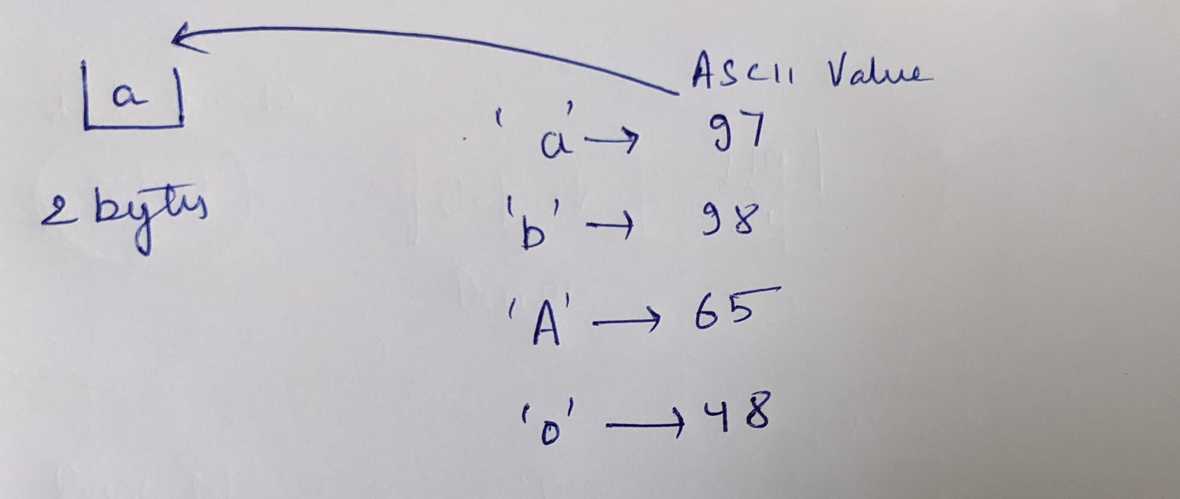 a
2 bytes
ASCII Value
'a' → 97
'b' → 98
'A' → 65
'0' → 48